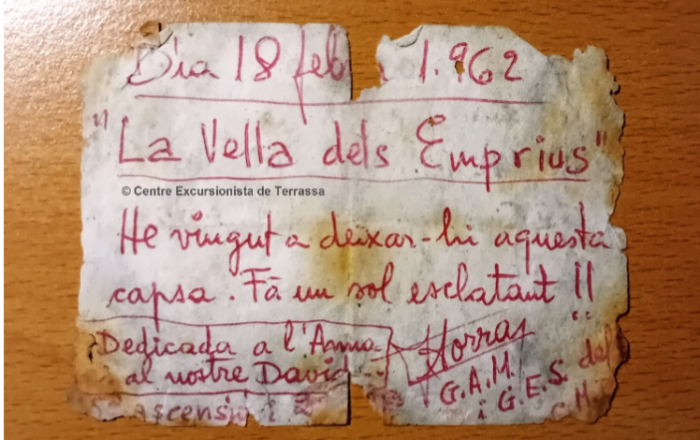 Dia 18 feb 1.962
"La Vella dels Emprius"
© Centre Excursionista de Terrassa
He vingut a deixar-hi aquesta
capsa. Fà un sol esclatant !!
Dedicada a l'Anna
al nostre David
G.A.M.
i G.E.S. del